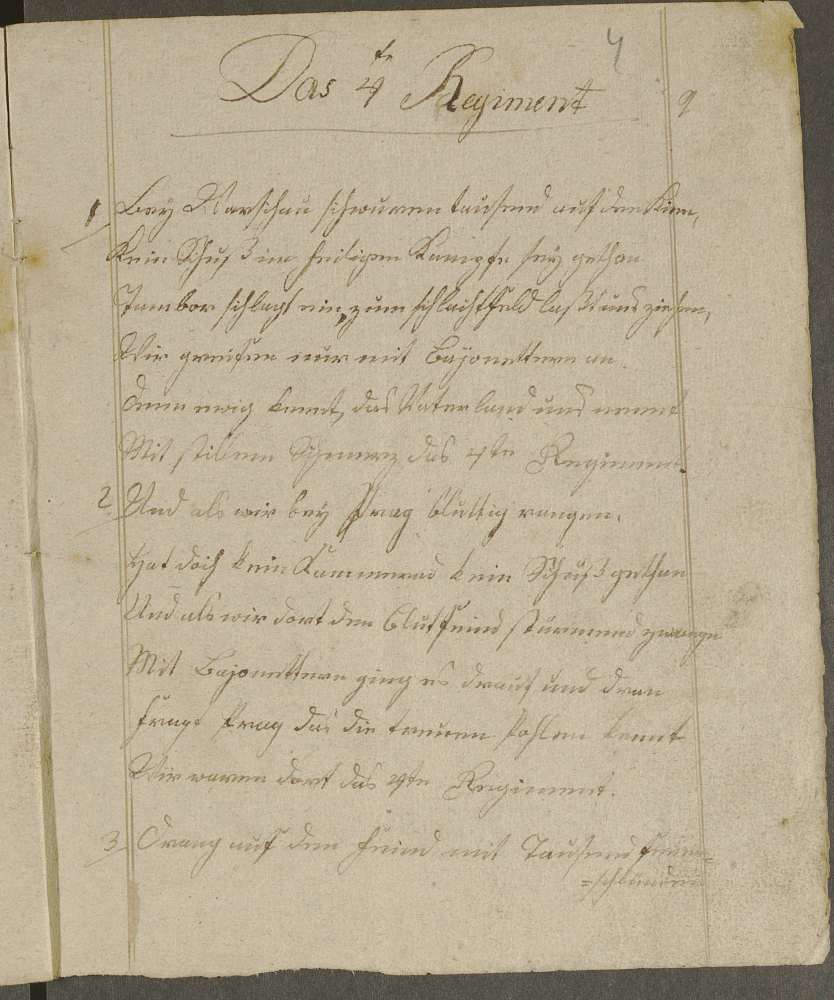 4
Das 4te Regiment
9
1 Bey Warschau schwuren tausend auf den Knien,
Kein Schuß im heiligen Kampfe sey gethan
Tambor schlagt ein, zum schlachtfeld laßt uns ziehen,
Wir greifen nur mit Bajonettern an.
Denn ewig kennt, das Vaterland und nennt
Mit stillem Schmerz das 4te Regiment.
2 Und als wir bey Prag bluttig rangen,
Hat doch kein Kammerad kein Schuß gethan
Und als wir dort den Blutfeind stürmend zwangen
Mit Bajonettern ging es drauf und dran
Fragt Prag das die treuen Pohlen kennt
Wir waren dort das 4te Regiment.
3 Drang auf den Feind mit Tausend feuer=
=schlünden